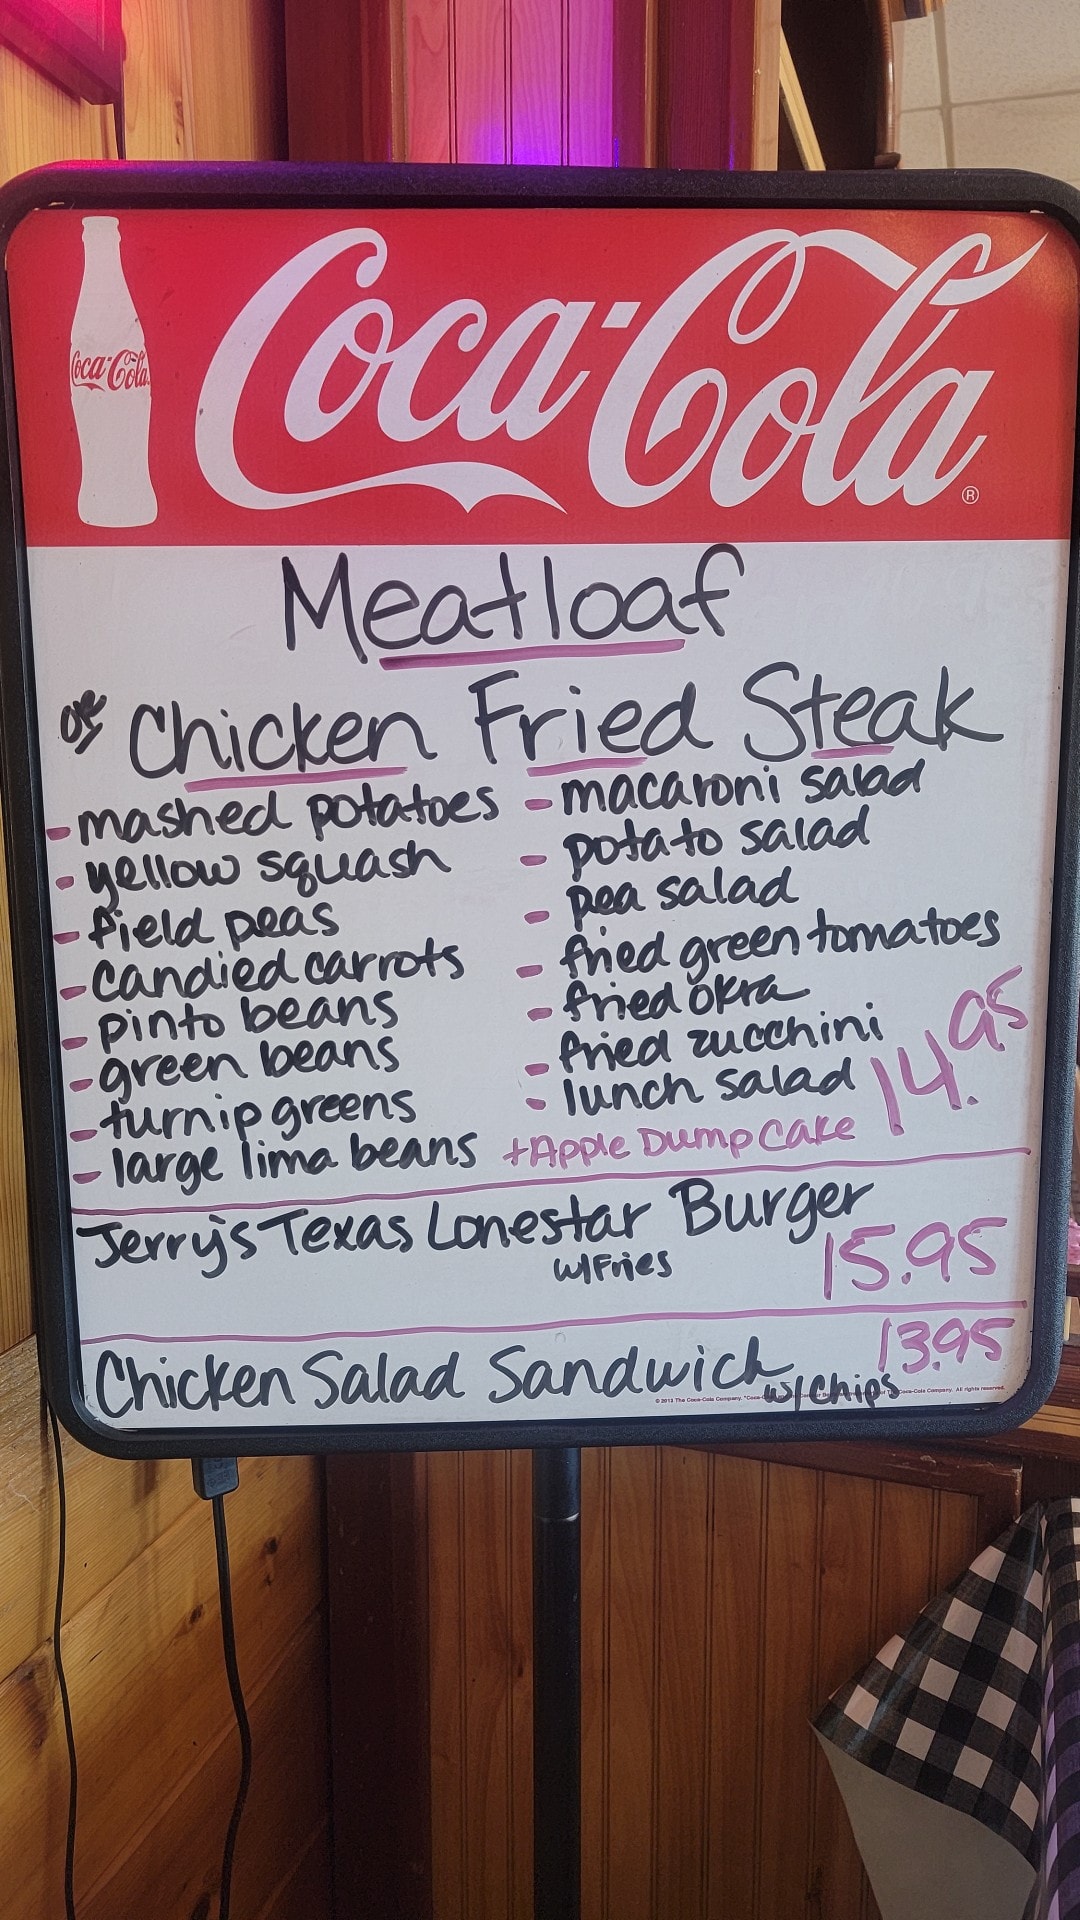 Coca-Cola
Coca-Cola®
Meatloaf
or Chicken Fried Steak
- mashed potatoes
- yellow squash
- field peas
- candied carrots
- pinto beans
- green beans
- turnip greens
- large lima beans
- macaroni salad
- potato salad
- pea salad
- fried green tomatoes
- fried okra
- fried zucchini
- lunch salad
+Apple Dump Cake
14.95
Jerry's Texas Lonestar Burger
w/Fries
15.95
Chicken Salad Sandwich
w/chips
13.95
© 2013 The Coca-Cola Company.
Coca-Cola Company. All rights reserved.